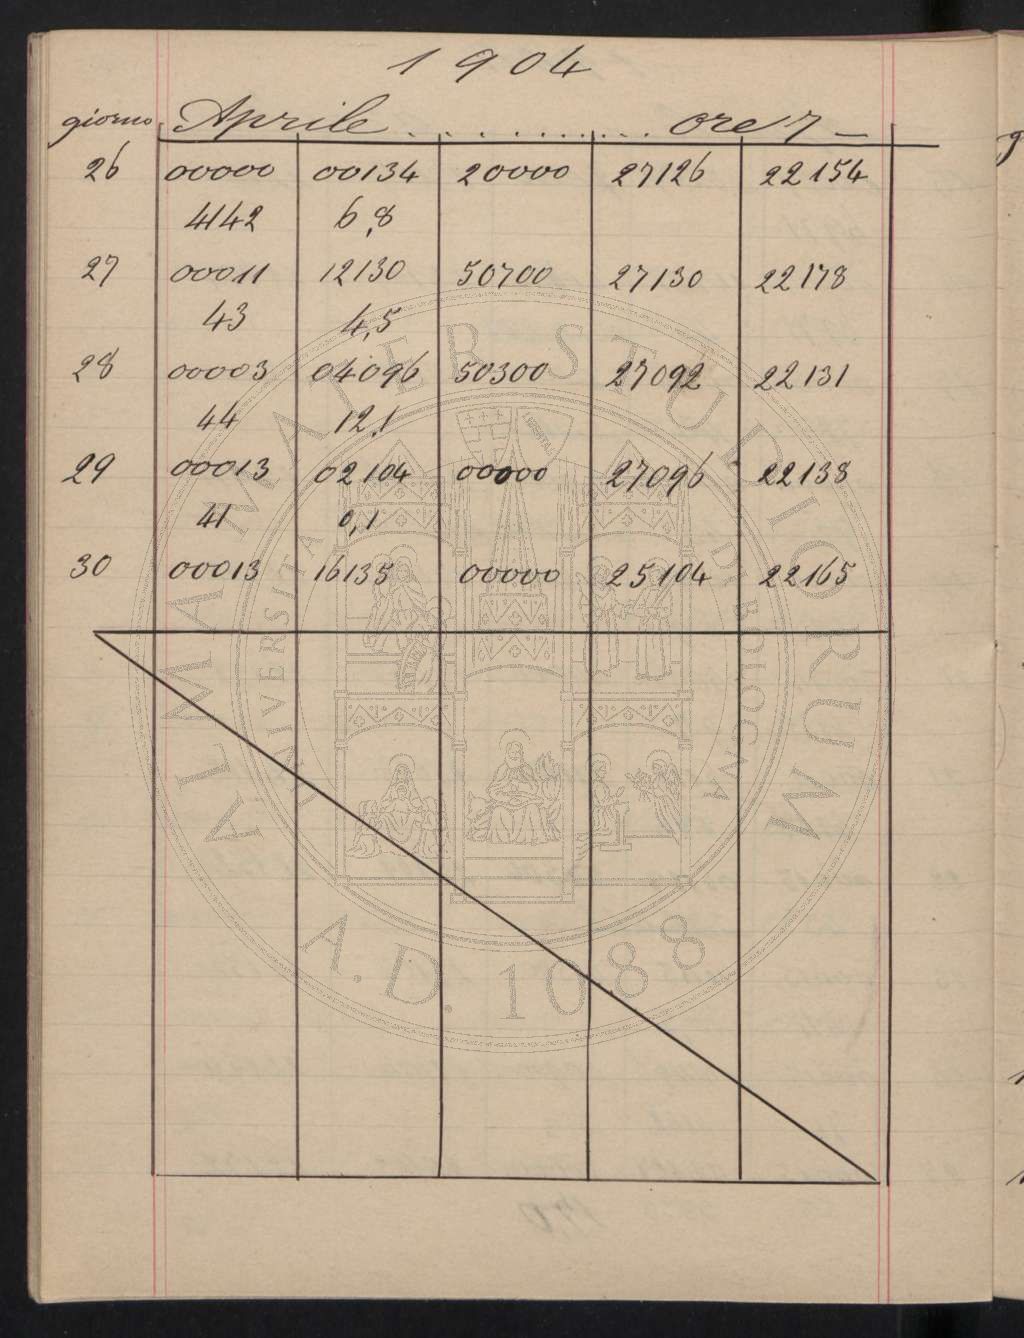 1904
giorno Aprile . . . . . . . . . . . . ore 7 —
26 00000 00134 20000 27126 22154
4142 6,8
27 00011 12130 50700 27130 22178
43 4,5
28 00003 04096 50300 27092 22131
44 12,1
29 00013 02104 00000 27096 22138
41 0,1
30 00013 16135 00000 25104 22165
ALMA MATER STUDIORUM
UNIVERSITÀ DI BOLOGNA
LIBERTAS
A.D. 1088